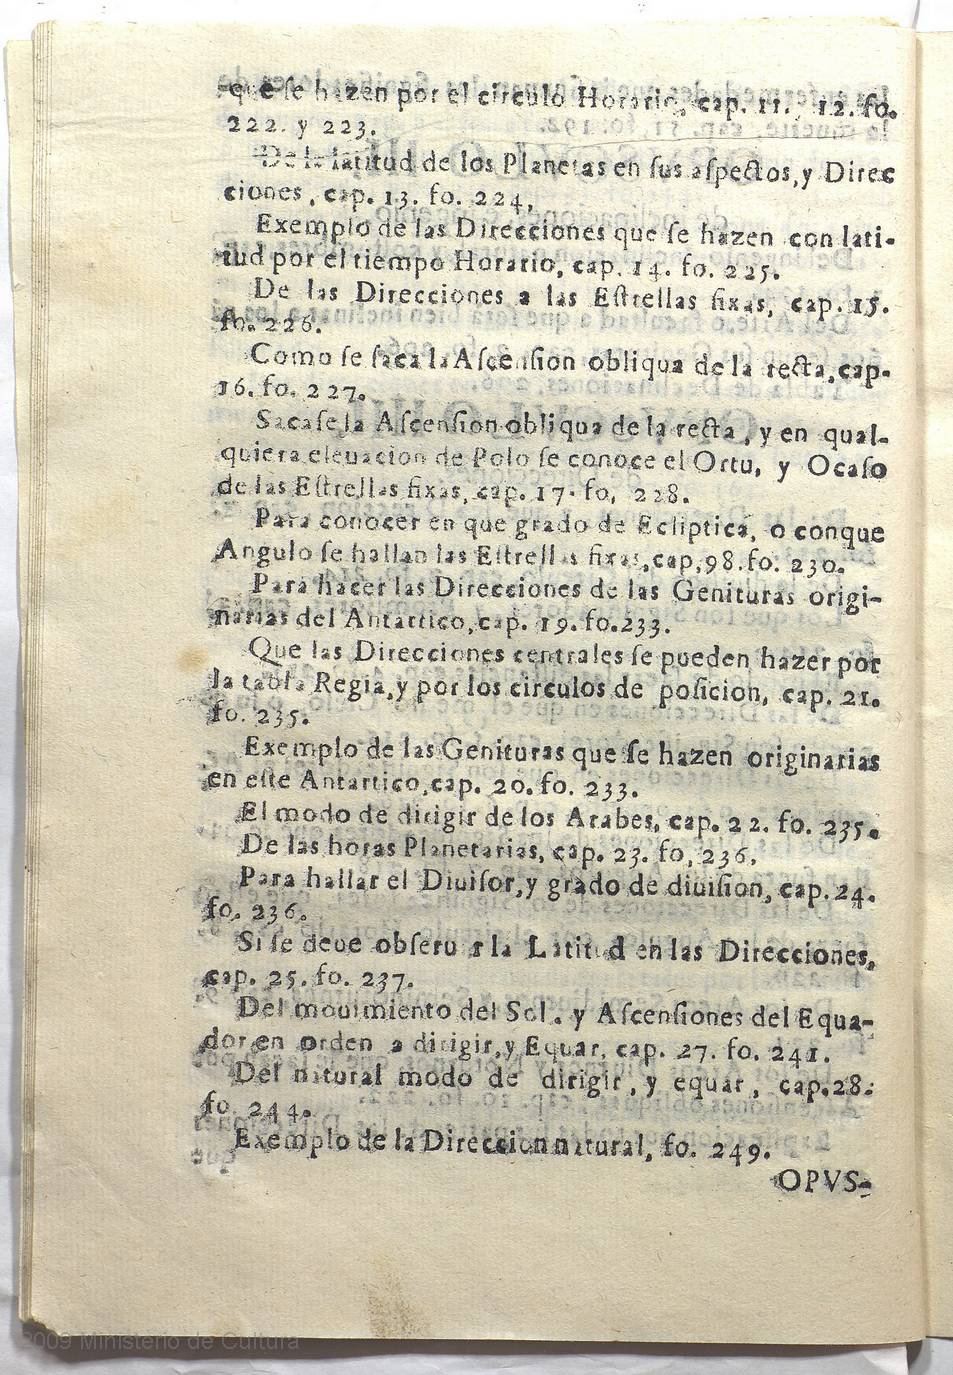 que ſe hazen por el circulo Horario, cap. 11. 12. fo.
222. y 223.
De la latitud de los Planetas en ſus aſpectos, y Direc
ciones, cap. 13. fo. 224,
Exemplo de las Direcciones que ſe hazen con lati-
tud por el tiempo Horario, cap. 14. fo. 225.
De las Direcciones a las Eſtrellas fixas, cap. 15.
fo. 226.
Como ſe ſaca la Aſcenſion obliqua de la recta, cap.
16. fo. 227.
Sacaſe la Aſcenſion obliqua de la recta, y en qual-
quiera eleuacion de Polo ſe conoce el Ortu, y Ocaſo
de las Eſtrellas fixas, cap. 17. fo, 228.
Para conocer en que grado de Ecliptica, o conque
Angulo ſe hallan las Eſtrellas fixas, cap, 98. fo. 230.
Para hacer las Direcciones de las Genituras origi-
narias del Antartico, cap. 19. fo. 233.
Que las Direcciones centrales ſe pueden hazer por
la tabla Regia, y por los circulos de poſicion, cap. 21.
fo. 235.
Exemplo de las Genituras que ſe hazen originarias
en eſte Antartico, cap. 20. fo. 233.
El modo de dirigir de los Arabes, cap. 22. fo. 235.
De las horas Planetarias, cap. 23. fo, 236,
Para hallar el Diuiſor, y grado de diuiſion, cap. 24.
fo. 236.
Si ſe deue obſeruar la Latitud en las Direcciones,
cap. 25. fo. 237.
Del mouimiento del Sol. y Aſcenſiones del Equa-
dor en orden a dirigir, y Equar, cap. 27. fo. 241.
Del natural modo de dirigir, y equar, cap. 28.
fo. 244.
Exemplo de la Direccion natural, fo. 249.
OPVS-
2009 Ministerio de Cultura